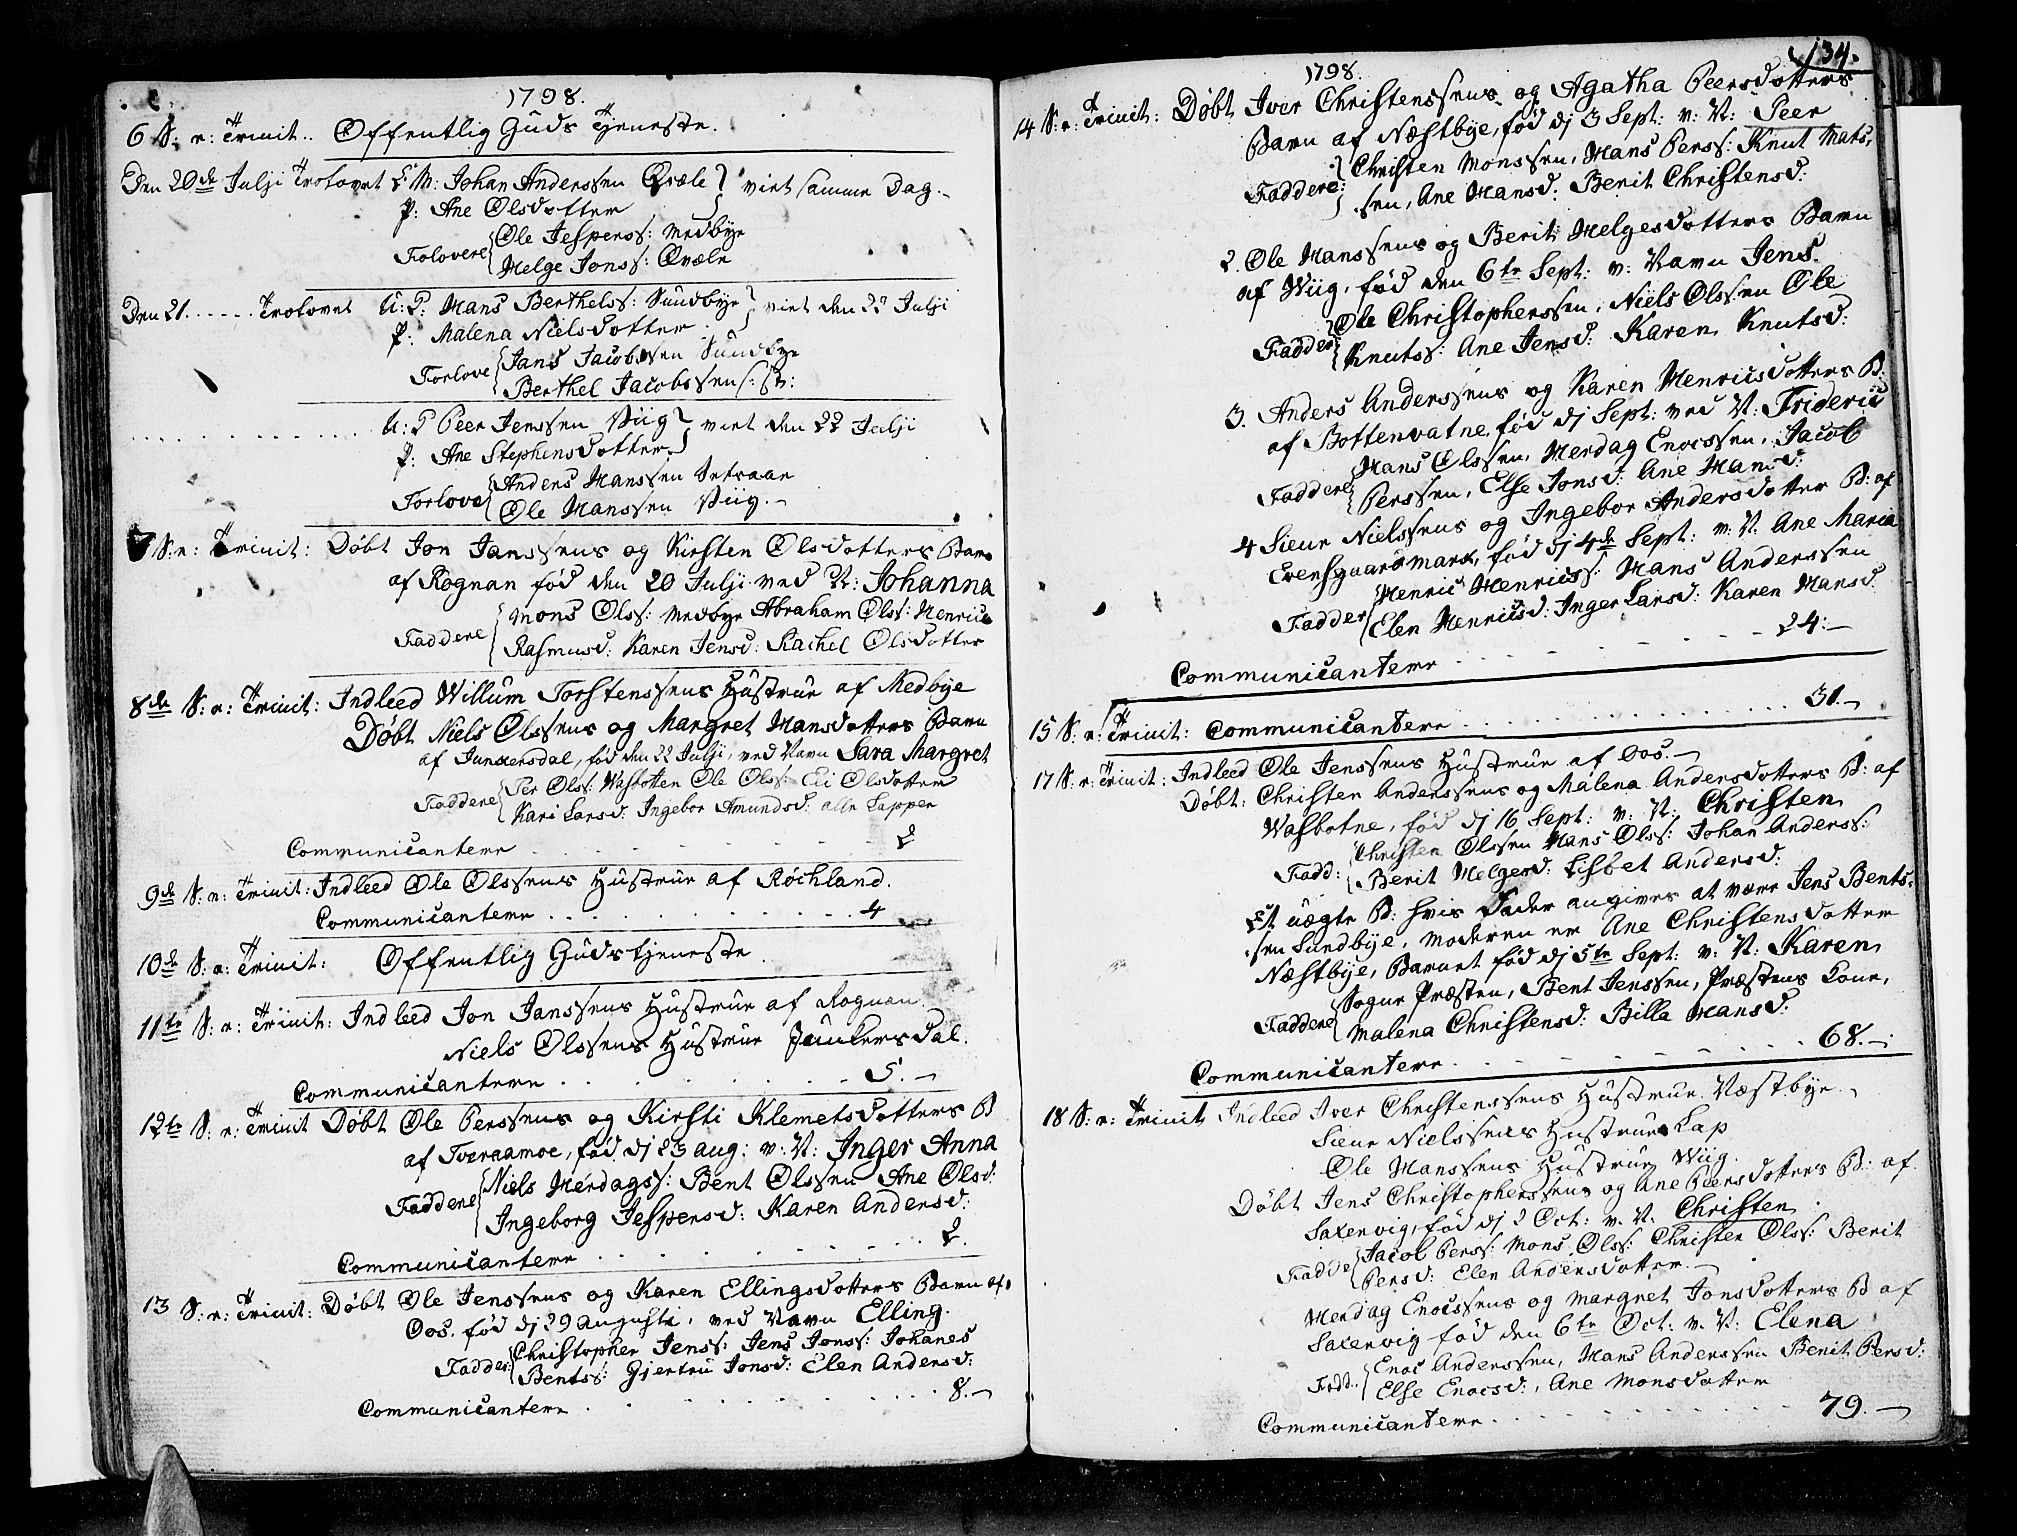 1798.
6 S: e: Trinit.. Offentlig Guds Tjeneste.
Den 20de Julji Trolovet E. M: Johan Anderssen Qvæle } viet samme Dag.
P: Ane Olsdotter
Folovere { Ole Jespers: Medbye
Helge Jons: Qvæle
Den 21...... Trolovet U: P: Hans Berthels: Sundbye } viet den 22 Julji
P: Malena Nielsdotter
Forlove { Jans Jacobssen Sundbye
Berthel Jacobssen
U: P Peer Jenssen Viig } viet den 22 Julji
P: Ane Stephensdotter
Forlove { Anders Hanssen Setraae
Ole Hanssen Viig.
7 S: e: Trinit: Døbt Jon Janssens og Kirsten Olsdotters Barn
af Rognan fød den 20 Julji ved N: Johanna
Faddere { Mons Ols: Medbye Abraham Ols: Henrica
Rasmusd: Karen Jensd: Rachel Olsdotter
8de S: e: Trinit: Indleed Willum Torstenssens Hustrue af Medbye
Døbt Niels Olssens og Margret Hansdotters Barn
af Junkersdal, fød den 22 Julji, ved Navn Sara Margret
Faddere { Per Ols: Wasbotten Ole Ols: Eli Olsdotter
Kari Larsd: Ingebor Amundsd: alle Lapper
Communicantere . . . . 2
9de S: e: Trinit: Indleed Ole Olssens Hustrue af Røchland.
Communicantere . . . . 4
10de S: e: Trinit: Offentlig Gudstjeneste.
11te S: e: Trinit: Indleed Jon Janssens Hustrue af Rognan
Niels Olssens Hustrue Junkersdal.
Communicantere . . . . 5.
12te S: e: Trinit Døbt Ole Perssens og Kirsti Klemetsdotters B
af Tveraamoe, fød dj 23 aug: v: N: Inger Anna
Faddere { Niels Merdags: Bent Olssen Ane Olsd:
Ingeborg Jespersd: Karen Andersd:
Communicantere . . . . 2.
13 S: e: Trinit: Døbt Ole Jenssens og Karen Ellingsdotters Barn af
Oos, fød dj 29 Augusti, ved Navn Elling.
Fadder { Christopher Jens: Jens Jons: Johanes
Bents: Gjertru Jonsd: Elen Andersd:
Communicantere . . . . 8.
134.
1798.
14 S: e: Trinit: Døbt Iver Christenssens og Agatha Peersdotters
Barn af Næstbye, fød dj 3 Sept: v: N: Peer
Faddere { Christen Monssen, Hans Pers: Knut Mats,
sen, Ane Hansd: Berit Christensd:
2. Ole Hanssens og Berit Helgesdotters Barn
af Wiig, fød den 6te Sept: v: Navn Jens.
Fadder { Ole Christophersen, Niels Olssen Ole
Knuts: Ane Jensd: Karen Knutsd:
3. Anders Anderssens og Karen Henricsdotters B:
af Bottenvatne, fød dj Sept: ved N: Frideric
Faddere { Hans Olssen, Merdag Enocssen, Jacob
Perssen, Else Jonsd: Ane Hansd:
4 Siur Nielssens og Ingebor Andersdotter B: af
Evensgaardmark, fød dj 4de Sept: v: N. Ane Maria
Fadder { Henric Henrics: Hans Anderssen
Elen Henricsd: Inger Larsd: Karen Hansd:
Communicantere . . . . 24:
15 S: e: Trinit: Communicantere . . . . 31.
17 S: e: Trinit: Indleed Ole Jenssens Hustrue af Oos.
Døbt: Christen Anderssens og Malena Andersdotters B: af
Wasbotne, fød dj 16 Sept: v: N: Christen
Fadd: { Christen Olssen Hans Ols: Johan Anders:
Berit Helgesd: Lisbet Andersd:
Et uægte B: hvis Fader angives at være Jens Bents-
sen Sundbye, Moderen er Ane Christensdotter
Næstbye, Barnet fød dj 5te Sept: v: N: Karen
Faddere { Sogne Præsten, Bent Jenssen, Præstens Kone,
Malena Christensd: Billa Hansd:
Communicantere . . . . 68.
18 S: e: Trinit Indleed Iver Christenssens Hustrue Næstbye.
Siur Nielssens Hustrue Lap
Ole Hanssens Hustrue Wiig.
Døbt Jens Christophersens og Ane Peersdotters B: af
Saxenvig, fød dj 2 Oct: v. N. Christen
Fadde { Jacob Pers: Mons Ols: Christen Ols: Berit
Persd: Elen Andersdotter.
Merdag Enocssens og Margret Jonsdotters B af
Saxenvig fød den 6te Oct: v. N: Elena
Fadd.. { Enoc Anderssen, Hans Anderssen Berit Persd:
Else Enocsd:, Ane Monsdotter
Communicantere . . . . 79.